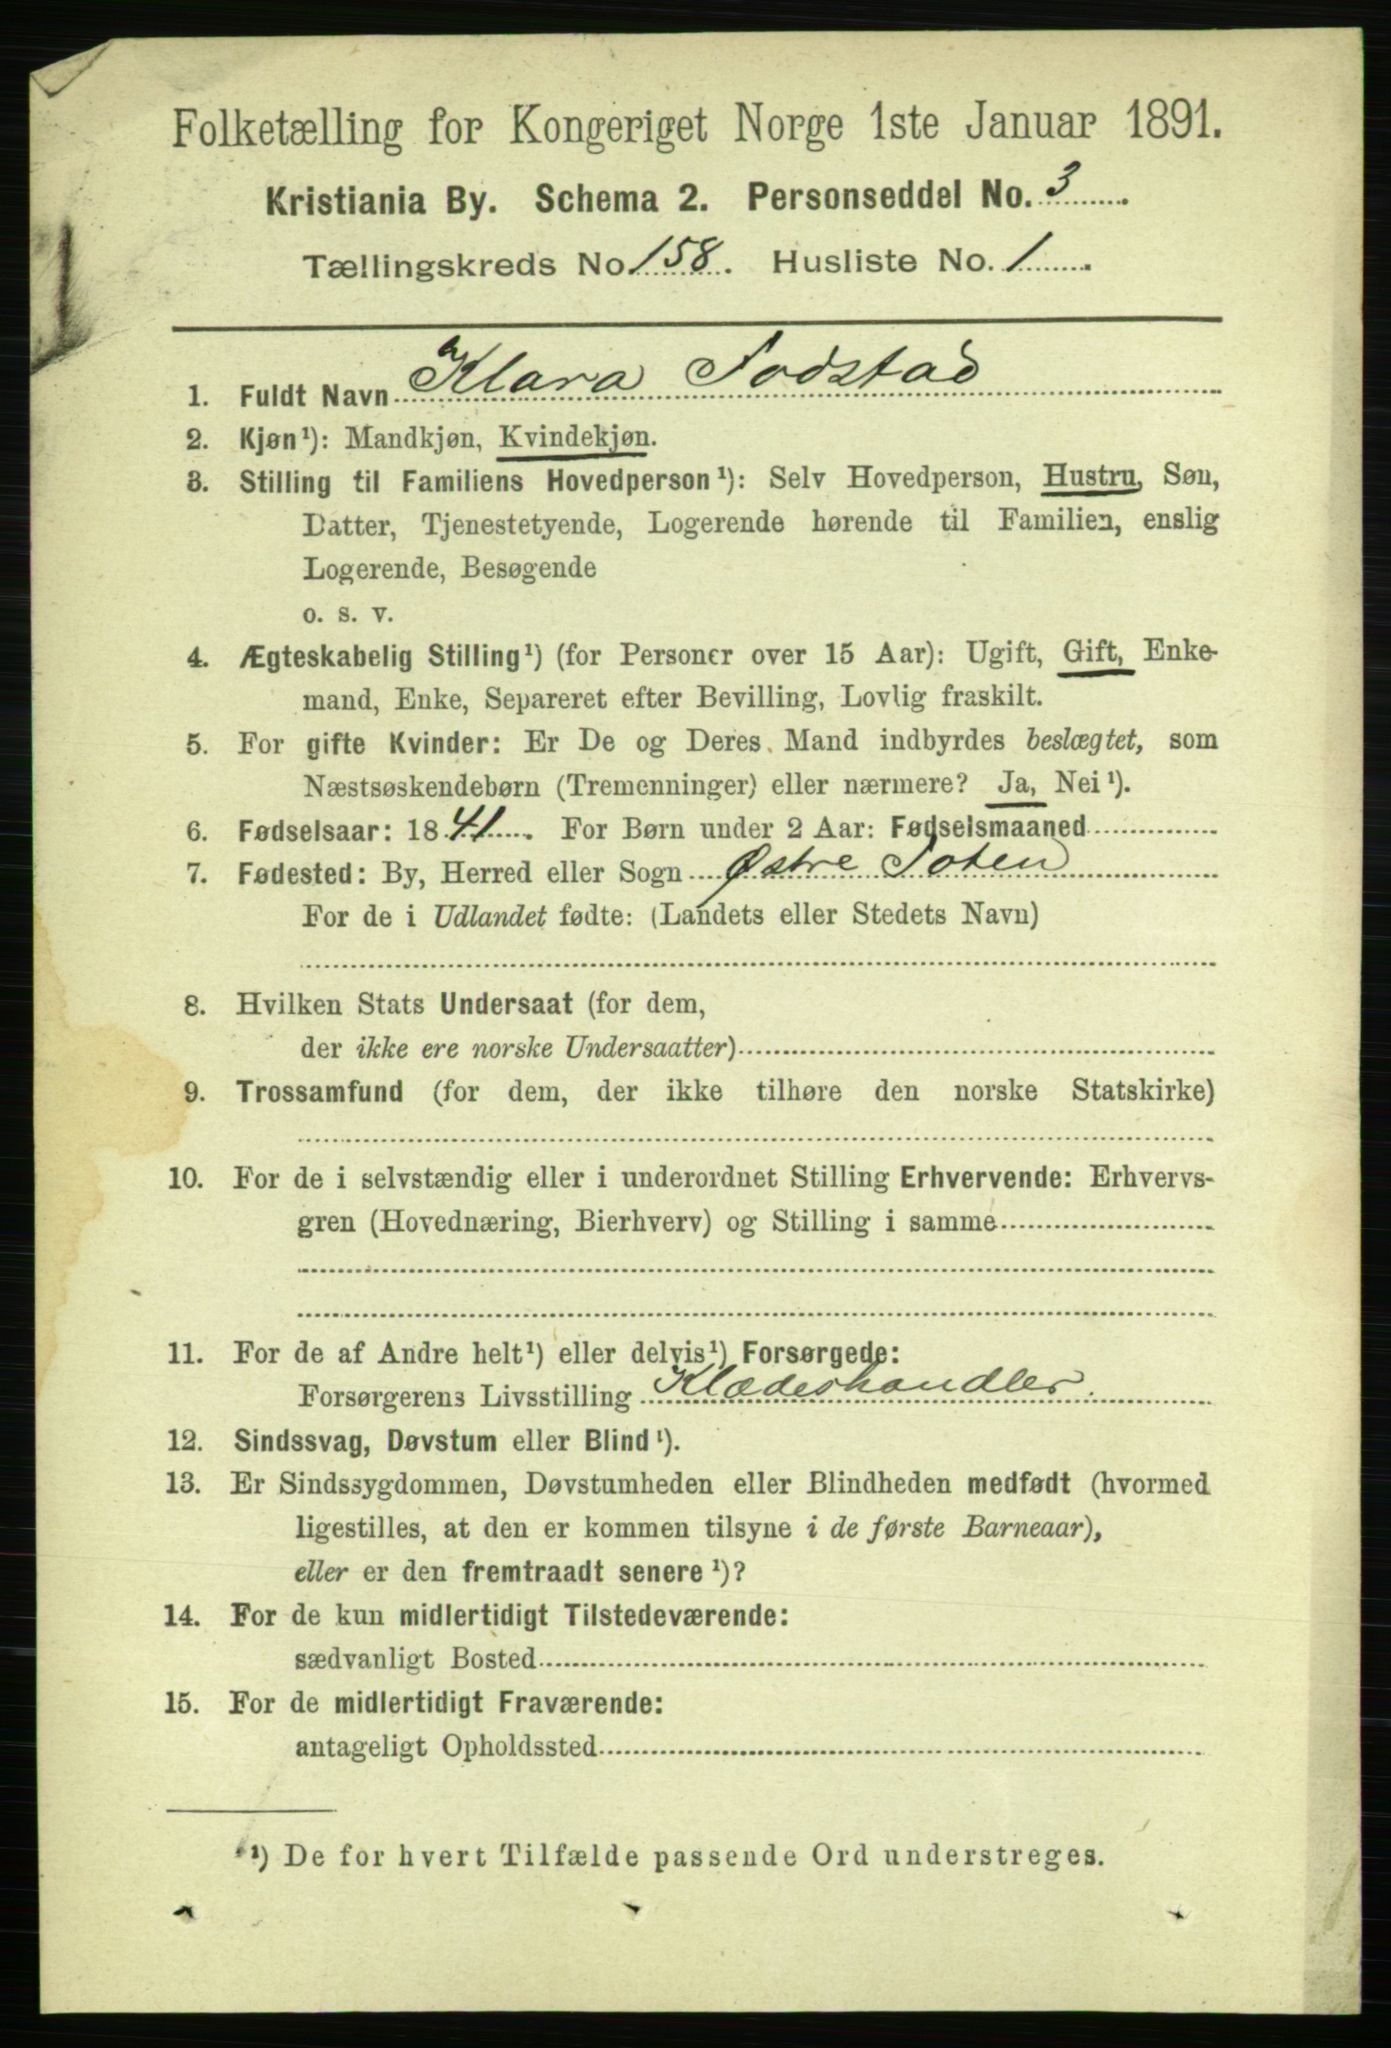 Folketælling for Kongeriget Norge 1ste Januar 1891.
Kristiania By. Schema 2. Personseddel No. 3
Tællingskreds No 158. Husliste No. 1
1. Fuldt Navn Klara Todstad
2. Kjøn¹): Mandkjøn, Kvindekjøn.
3. Stilling til Familiens Hovedperson¹): Selv Hovedperson, Hustru, Søn,
Datter, Tjenestetyende, Logerende hørende til Familien, enslig
Logerende, Besøgende
o. s. v.
4. Ægteskabelig Stilling¹) (for Personer over 15 Aar): Ugift, Gift, Enke-
mand, Enke, Separeret efter Bevilling, Lovlig fraskilt.
5. For gifte Kvinder: Er De og Deres Mand indbyrdes beslægtet, som
Næstsøskendebørn (Tremenninger) eller nærmere? Ja, Nei¹).
6. Fødselsaar: 1841. For Børn under 2 Aar: Fødselsmaaned
7. Fødested: By, Herred eller Sogn Østre Toten
For de i Udlandet fødte: (Landets eller Stedets Navn)
8. Hvilken Stats Undersaat (for dem,
der ikke ere norske Undersaatter)
9. Trossamfund (for dem, der ikke tilhøre den norske Statskirke)
10. For de i selvstændig eller i underordnet Stilling Erhvervende: Erhvervs-
gren (Hovednæring, Bierhverv) og Stilling i samme
11. For de af Andre helt¹) eller delvis¹) Forsørgede:
Forsørgerens Livsstilling Klædeshandler.
12. Sindssvag, Døvstum eller Blind¹).
13. Er Sindssygdommen, Døvstumheden eller Blindheden medfødt (hvormed
ligestilles, at den er kommen tilsyne i de første Barneaar),
eller er den fremtraadt senere¹)?
14. For de kun midlertidigt Tilstedeværende:
sædvanligt Bosted
15. For de midlertidigt Fraværende:
antageligt Opholdssted
¹) De for hvert Tilfælde passende Ord understreges.